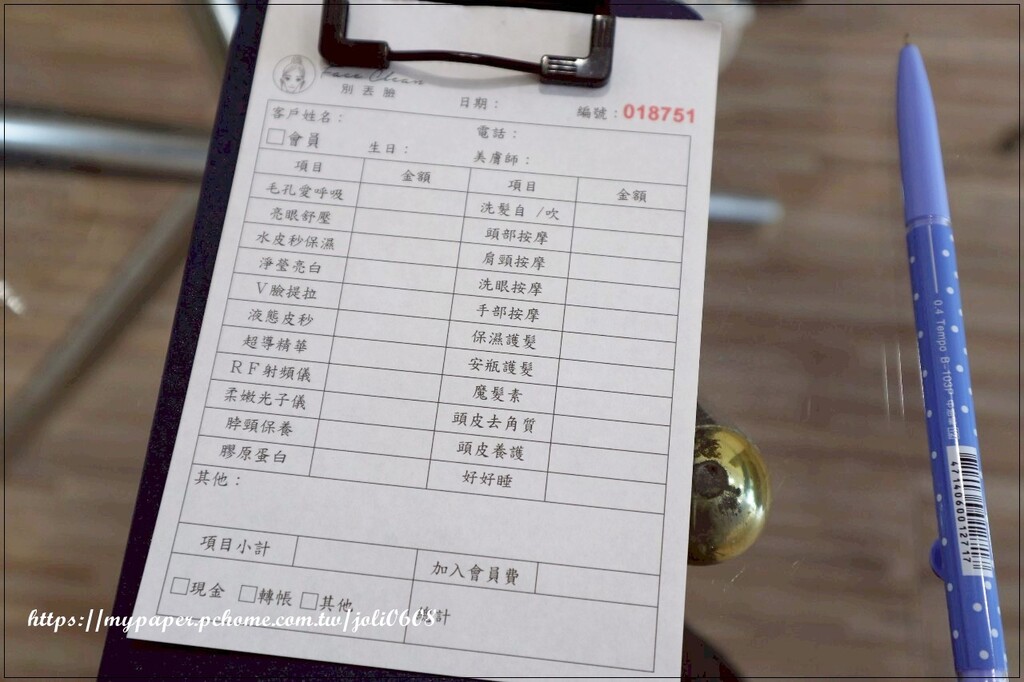 Face Clean
別丟臉
日期：
編號：018751
客戶姓名：
電話：
□會員
生日：
美膚師：
項目 金額 項目 金額
毛孔愛呼吸 洗髮自 /吹
亮眼舒壓 頭部按摩
水皮秒保濕 肩頸按摩
淨瑩亮白 洗眼按摩
V臉提拉 手部按摩
液態皮秒 保濕護髮
超導精華 安瓶護髮
RF射頻儀 魔髮素
柔嫩光子儀 頭皮去角質
脖頸保養 頭皮養護
膠原蛋白 好好睡
其他：
項目小計 加入會員費
□現金 □轉帳 □其他
總計
https://mypaper.pchome.com.tw/joli0608
0.4 Tempo B-103P
4714060012717